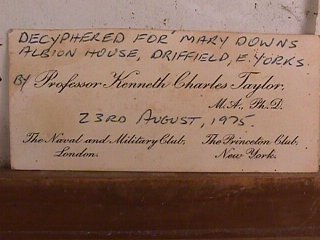 DECYPHERED FOR MARY DOWNS
ALBION HOUSE, DRIFFIELD, E. YORKS.
BY Professor Kenneth Charles Taylor,
M.A., Ph.D.
23RD AUGUST, 1975
The Naval and Military Club, The Princeton Club,
London. New York.